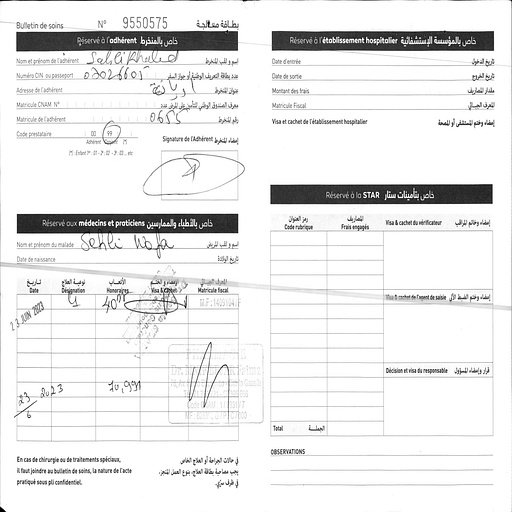 Bulletin de soins N° 9550575 بطاقة معالجة
Réservé à l'adhérent خاص بالمنخرط
Nom et prénom de l'adhérent Sehli Khaled اسم و لقب المنخرط
Numéro CIN ou passeport عدد بطاقة التعريف الوطنية أو جواز السفر
Adresse de l'adhérent أريانة عنوان المنخرط
Matricule CNAM N°
Matricule de l'adhérent 0655 رقم المنخرط
Code prestataire 00 99 Signature de l'Adhérent إمضاء المنخرط
Adhérent
Réservé aux médecins et praticiens خاص بالأطباء والممارسين
Nom et prénom du malade Sehli Wafa اسم و لقب المريض
Date de naissance تاريخ الولادة
تاريخ نوعية العلاج الأتعاب الإمضاء و الختم المعرف الجبائي
Date Désignation Honoraires Visa & Cachet Matricule fiscal
23 JUIN 2023
23/6 2023 70,991
En cas de chirurgie ou de traitements spéciaux,
il faut joindre au bulletin de soins, la nature de l'acte
pratiqué sous pli confidentiel.
في حالات الجراحة أو العلاج الخاص
يجب مصاحبة بطاقة العلاج، بنوع العمل المنجز،
في ظرف سري.
Réservé à l'établissement hospitalier خاص بالمؤسسة الإستشفائية
Date d'entrée تاريخ الدخول
Date de sortie تاريخ الخروج
Montant des frais مقدار المصاريف
Matricule Fiscal المعرف الجبائي
Visa et cachet de l'établissement hospitalier إمضاء وختم المستشفى أو المصحة
Réservé à la STAR خاص بتأمينات ستار
رمز العنوان المصاريف
Code rubrique Frais engagés Visa & cachet du vérificateur إمضاء وخاتم المراقب
Visa & cachet de l'agent de saisie
Décision et visa du responsable قرار وإمضاء المسؤول
Total الجملة
OBSERVATIONS